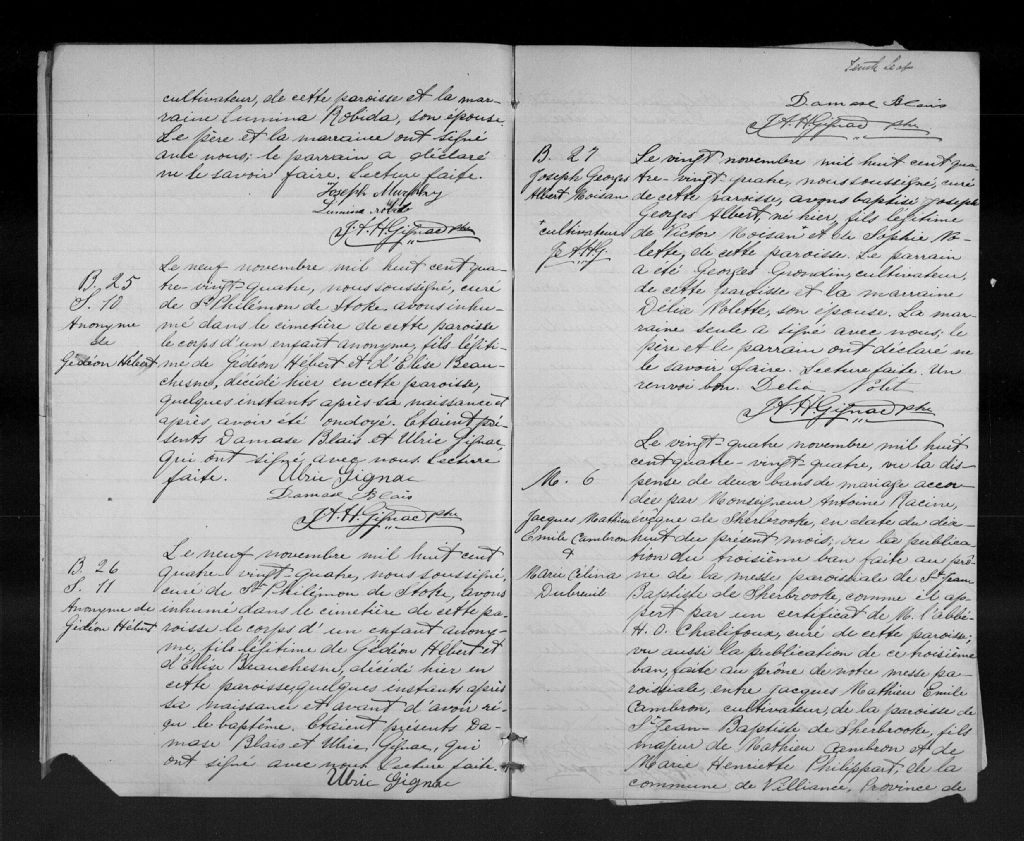 cultivateur, de cette paroisse et la mar-
raine Lumina Robida, son épouse.
Le père et la marraine ont signé
avec nous; le parrain a déclaré
ne le savoir faire. Lecture faite.
Joseph Murphy
Lumina Robida
J. A. H. Gignac ptre
B. 25
S. 10
Anonyme
de
Gédéon Hébert
Le neuf novembre mil huit cent qua-
tre-vingt-quatre, nous soussigné, curé
de St Philémon de Stoke avons inhu-
mé dans le cimetière de cette paroisse
le corps d'un enfant anonyme, fils légiti-
me de Gédéon Hébert et d'Elise Beau-
chesne, décidé hier en cette paroisse,
quelques instants après sa naissance et
après avoir été ondoyé. Etaient pré-
sents Damase Blais et Ulric Gignac
qui ont signé avec nous. Lecture
faite. Ulric Gignac
Damase Blais
J. A. H. Gignac ptre
B. 26
S. 11
Anonyme de
Gédéon Hébert
Le neuf novembre mil huit cent
quatre-vingt-quatre, nous soussigné,
curé de St Philémon de Stoke, avons
inhumé dans le cimetière de cette pa-
roisse le corps d'un enfant anony-
me, fils légitime de Gédéon Hébert et
d'Elise Beauchesne, décédé hier en
cette paroisse, quelques instants après
sa naissance et avant d'avoir re-
çu le baptême. Etaient présents Da-
mase Blais et Ulric Gignac, qui
ont signé avec nous. Lecture faite.
Ulric Gignac
Tenth leaf
Damase Blais
J. A. H. Gignac ptre
B. 27
Joseph Georges
Albert Moisan
+ cultivateur
J. A. H. G
Le vingt novembre mil huit cent qua-
tre-vingt quatre, nous soussigné, curé
de cette paroisse, avons baptisé Joseph
Georges Albert, né hier, fils légitime
de Victor Moisan + et de Sophie No-
lette, de cette paroisse. Le parrain
a été Georges Grondin, cultivateur,
de cette paroisse et la marraine
Délia Nolette, son épouse. La mar-
raine seule a signé avec nous; le
père et le parrain ont déclaré ne
le savoir faire. Lecture faite. Un
renvoi bon. Delia Nolet
J. A. H. Gignac ptre
M. 6
Jacques Mathieu
Emile Cambron
&
Marie Célina
Dubreuil
Le vingt-quatre novembre mil huit
cent quatre-vingt-quatre, vu la dis-
pense de deux bans de mariage accor-
dée par Monseigneur Antoine Racine,
évêque de Sherbrooke, en date du dix-
huit du présent mois; vu la publica-
tion du troisième ban faite au prô-
ne de la messe paroissiale de St Jean
Baptiste de Sherbrooke, comme il ap-
pert par un certificat de M. l'abbé
H. O. Chalifoux, curé de cette paroisse;
vu aussi la publication de ce troisième
ban, faite au prône de notre messe pa-
roissiale, entre Jacques Mathieu Emile
Cambron, cultivateur, de la paroisse de
St Jean-Baptiste de Sherbrooke, fils
majeur de Mathieu Cambron et de
Marie Henriette Philippart, de la
commune de Villiance, Province de